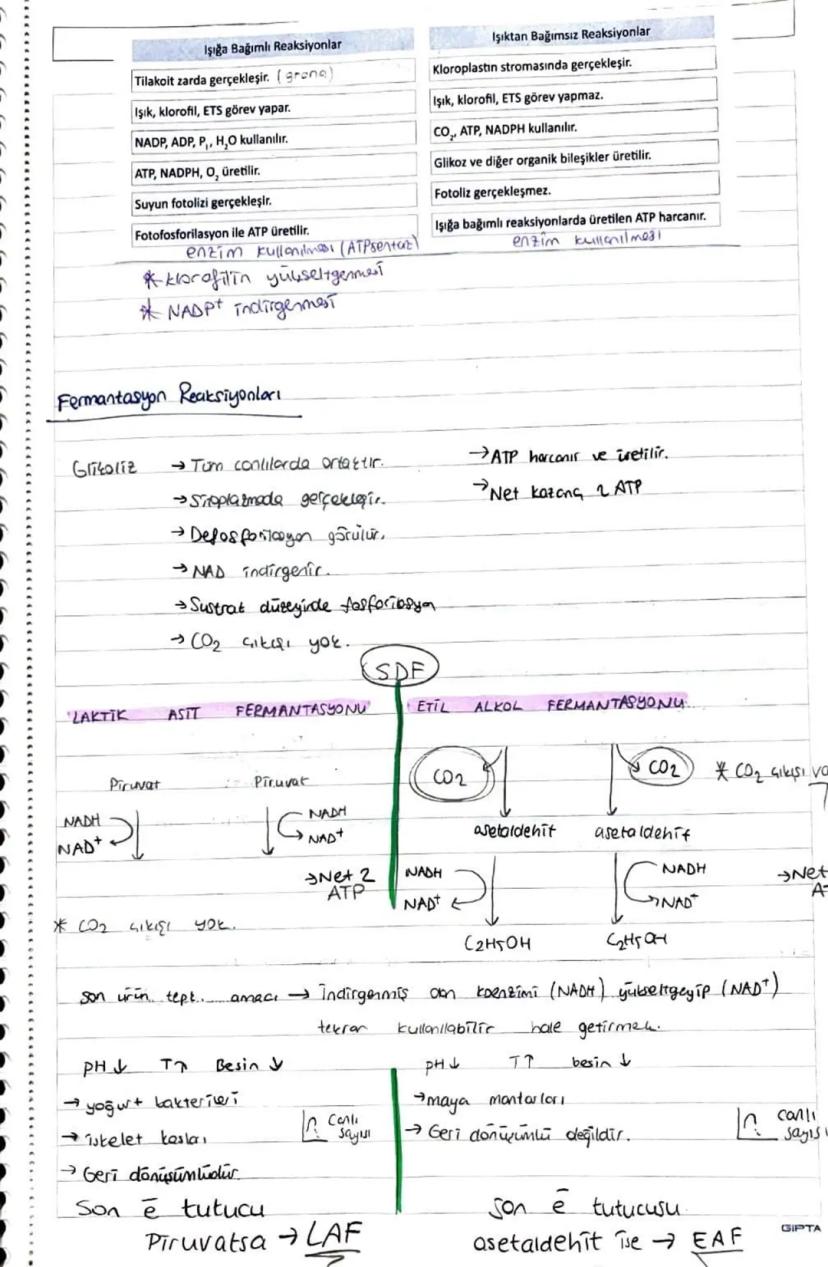 Işığa Bağımlı Reaksiyonlar
Tilakoit zarda gerçekleşir. (grana)
Işık, klorofil, ETS görev yapar.
NADP, ADP, Pᵢ, H₂O kullanılır.
ATP, NADPH, O₂ üretilir.
Suyun fotolizi gerçekleşir.
Fotofosforilasyon ile ATP üretilir.
enzim kullanılması (ATPsentaz)
* klorofilin yükseltgenmesi
* NADP⁺ indirgenmesi
Işıktan Bağımsız Reaksiyonlar
Kloroplastın stromasında gerçekleşir.
Işık, klorofil, ETS görev yapmaz.
CO₂, ATP, NADPH kullanılır.
Glikoz ve diğer organik bileşikler üretilir.
Fotoliz gerçekleşmez.
Işığa bağımlı reaksiyonlarda üretilen ATP harcanır.
enzim kullanılması
Fermantasyon Reaksiyonları
Glikoliz → Tüm canlılarda ortaktır.
→ Sitoplazmada gerçekleşir.
→ Defosforilasyon görülür.
→ NAD indirgenir.
→ Sustrat düzeyinde fosforilasyon
→ CO₂ çıkışı yok.
→ ATP harcanır ve üretilir.
→ Net kazanç 2 ATP
SDF
LAKTİK ASİT FERMANTASYONU
Piruvat Piruvat
NADH NADH
NAD⁺ NAD⁺
→ Net 2
ATP
* CO₂ çıkışı yok.
ETİL ALKOL FERMANTASYONU
CO₂ CO₂ * CO₂ çıkışı va
asetaldehit asetaldehit
NADH NADH → Net
NAD⁺ NAD⁺ A
C₂H₅OH C₂H₅OH
son ürün tept. amacı → İndirgenmiş olan koenzimi (NADH) yükseltgeyip (NAD⁺)
tekrar kullanılabilir hale getirmek.
pH ↓ T↑ Besin ↓
→ yoğurt bakterileri
→ iskelet kasları
Canlı
sayısı
→ Geri dönüşümlüdür
Son ē tutucu
Piruvatsa → LAF
pH ↓ T↑ besin ↓
→ maya mantarları
→ Geri dönüşümlü değildir.
canlı
sayısı
son ē tutucusu
asetaldehit ise → EAF
GIPTA